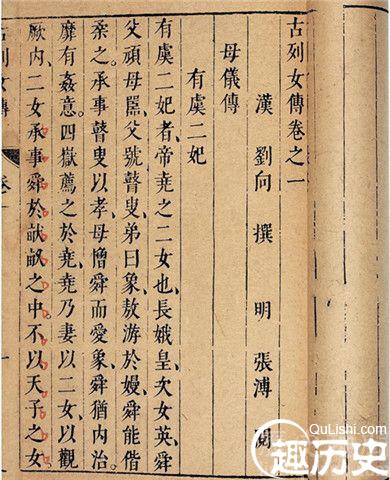 古列女傳卷之一
漢 劉向 撰 明 張溥 閱
母儀傳
有虞二妃
有虞二妃者、帝堯之二女也、長娥皇、次女英、舜
父頑母嚚、父號瞽叟、弟曰象、敖游於嫚、舜能偕
柔之、承事瞽叟以孝、母憎舜而愛象、舜猶內治、
靡有姦意、四嶽薦之於堯、堯乃妻以二女、以觀
厥內、二女承事舜於畎畝之中、不以天子之女
古列女傳 卷一
QuLishi.com
趣历史